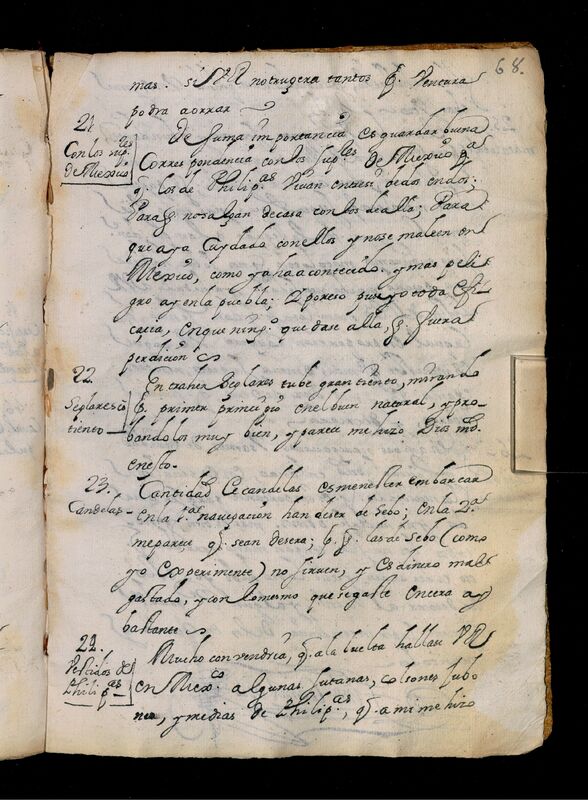 68.
mas. si V R no truxera tantos p.r Ventura
podra aorrar
21
Con los sup.res
de Mexico
De suma importancia es guardar buena
Correspondencia con los Sup.res de Mexico p.a
q. los de Philip.as Vivan enteros de los en dos;
Para q no salgan de casa con los de alla; Para
que aya Cuydado con ellos y no se maleen en
Mexico, como ya ha acontecido. y mas peli
gro ay en la puebla; y por eso puse yo toda efi
cacia, en que ning.o quedase alla, q fuera
perdicion
22.
Seglares cõ
tiento
En traher Seglares tube gran tiento, mirando
p.r primer principio en el buen natural, y pro
bandolos muy bien, y parece me hizo Dios md.
en esto.
23.
Candelas
Cantidad de candelas es menester embarcar
en la 1.a navegacion han de ser de Sebo; en la 2.a
me parece q. sean de sera; p. q las de sebo (como
yo experimente) no sirven, y es dinero mal
gastado, y con lo mesmo que se gaste en cera ay
bastante
24.
Vestidos de
Philip.as
Mucho convendria, q. a la buelta hallase V R
en Mex.co algunas sutanas, colsones jubo
nes, y medias de Philip.as, q. a mi me hizo